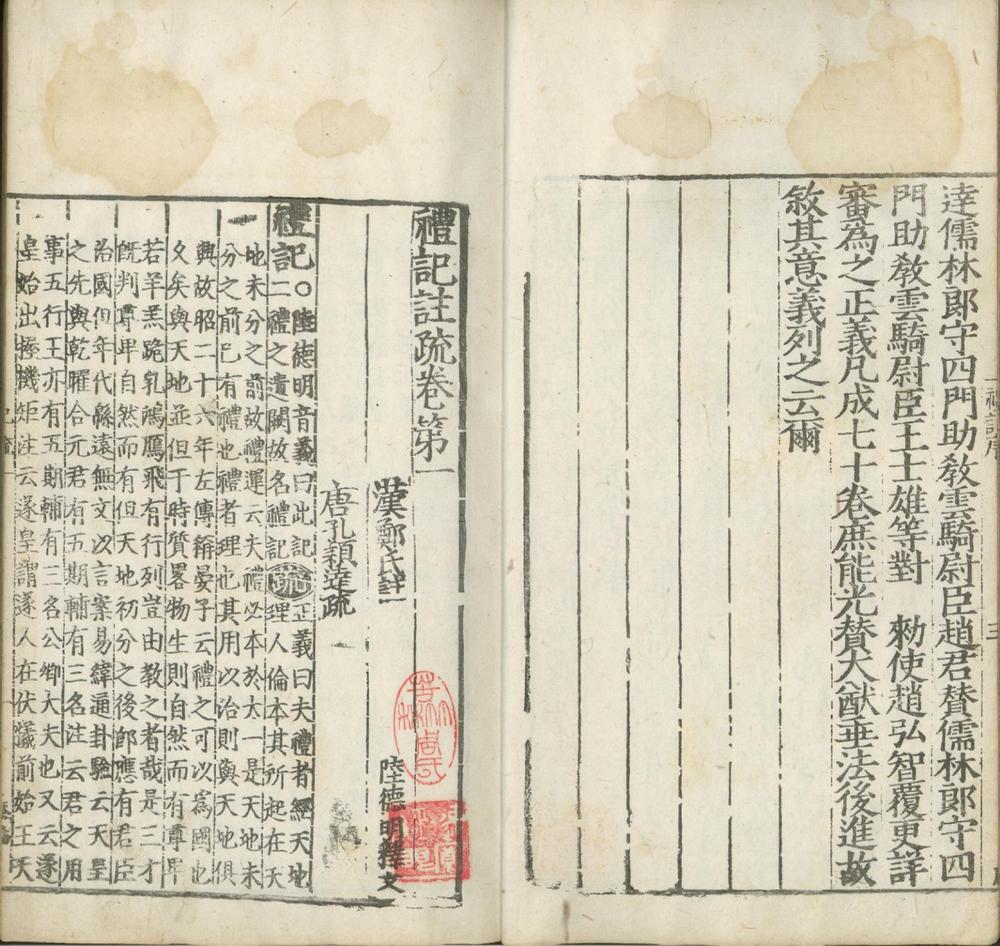 逹儒林郎守四門助敎雲騎尉臣趙君賛儒林郎守四
門助敎雲騎尉臣王士雄等對　勑使趙弘智覆更詳
審爲之正義凡成七十卷庶能光賛大猷垂法後進故
敘其意義列之云爾
禮記註疏卷第一
漢鄭氏註
陸德明釋文
唐孔穎逹疏
禮記○陸德明音義曰此記二禮之遺闕故名禮記
疏正義曰夫禮者經天地理人倫本其所起在天
地未分之前故禮運云夫禮必本於大一是天地未
分之前已有禮也禮者理也其用以治則與天地俱
興故昭二十六年左傳稱晏子云禮之可以爲國也
乆矣與天地並但于時質畧物生則自然而有尊卑
若羊羔跪乳鴻鴈飛有行列豈由教之者哉是三才
旣判尊卑自然而有但天地初分之後卽應有君臣
治國但年代緜遠無文以言案易緯通卦驗云天皇
之先與乾曜合元君有五期輔有三名注云君之用
事五行王亦有五期輔有三名公卿大夫也又云遂
皇始出握機矩注云遂皇謂遂人在伏犧前始王天